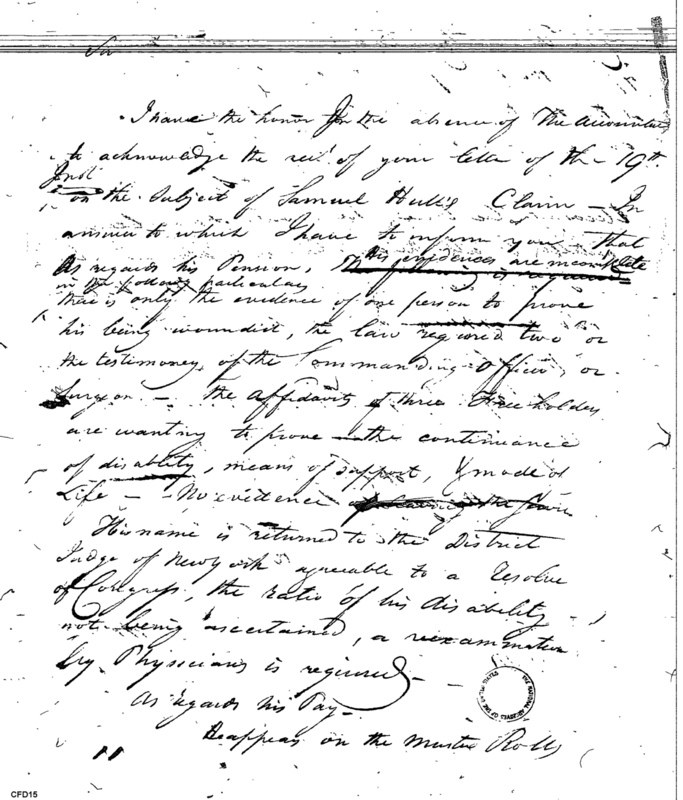 Sir
I have the honor In the absence of The Accountant
to acknowledge the rect. of your letter of the 19th
Inst
on the Subject of Samuel Hull's Claim - In
answer to which I have to inform you - that
As regards his Pension, his evidences are incomplete
in the following particulars
there is only the evidence of one person to prove
his being wounded, the law required two or
the testimoney of the Commanding Officer, or
Surgeon - the affidavits of three Free holders
are wanting to prove the continuance
of disability, means of support, & mode of
Life - No evidence
His name is returned to the District
Judge of New york agreeable to a Resolve
of Congress, the ratio of his disability
not being ascertained, a reexamination
by Physicians is required -
As regards his Pay -
He appears on the Muster Rolls
CFD15